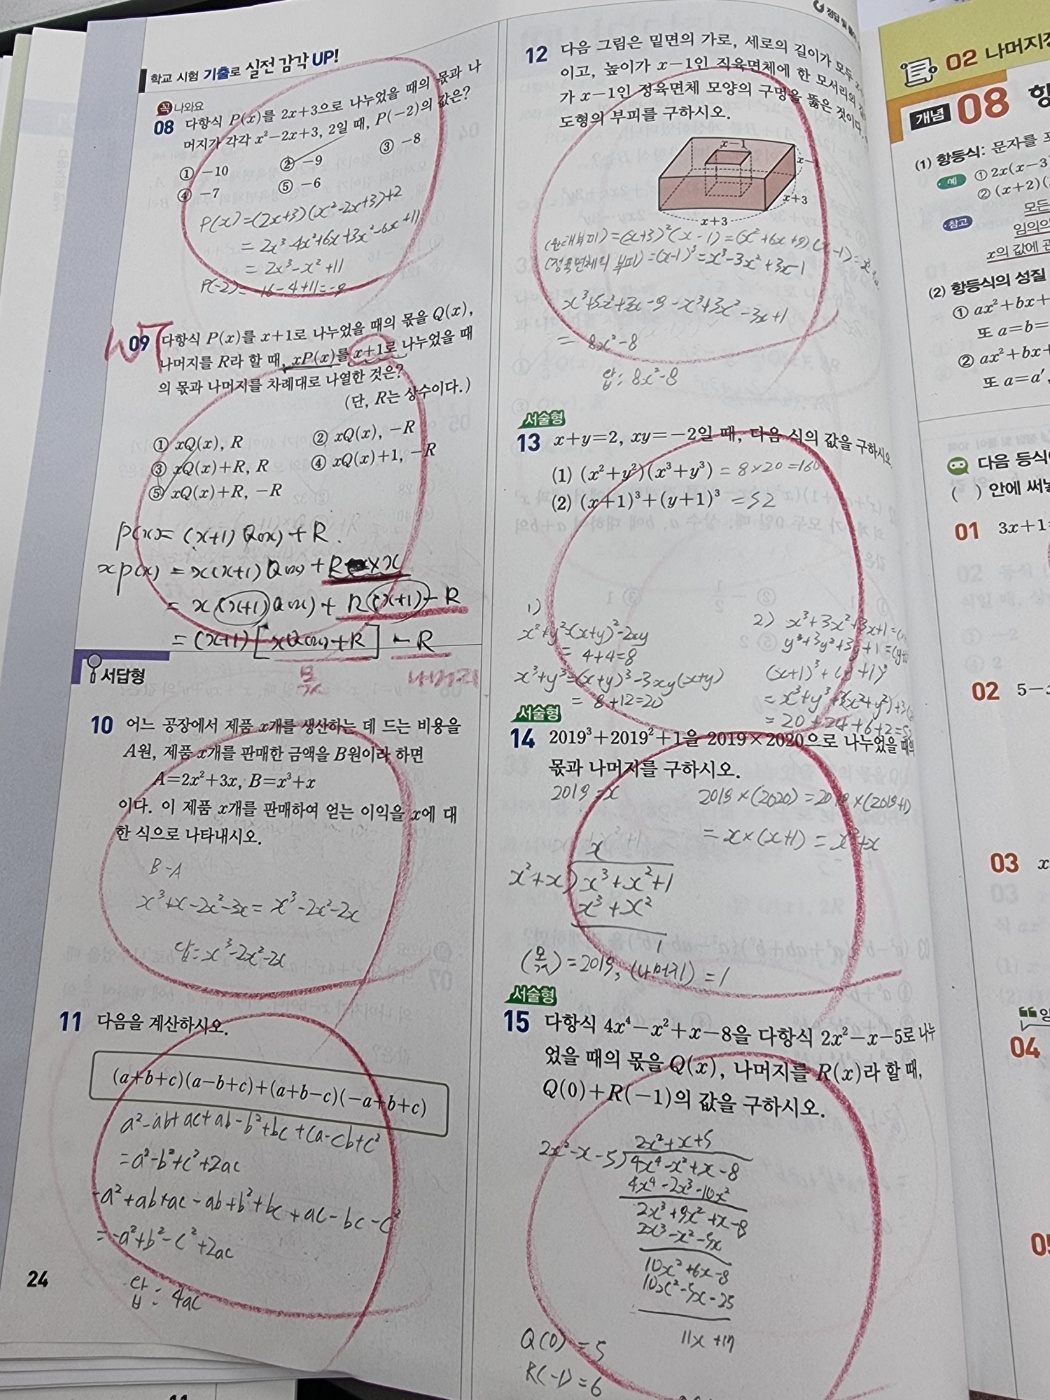 학교 시험 기출로 실전 감각 UP!
꼭 나와요
08 다항식 P(x)를 2x+3으로 나누었을 때의 몫과 나
머지가 각각 x²-2x+3, 2일 때, P(-2)의 값은?
① -10 ② -9 ③ -8
④ -7 ⑤ -6
P(x)=(2x+3)(x²-2x+3)+2
= 2x³-4x²+6x+3x²-6x+11
= 2x³-x²+11
P(-2)= -16-4+11=-9
09 다항식 P(x)를 x+1로 나누었을 때의 몫을 Q(x),
나머지를 R라 할 때, xP(x)를 x+1로 나누었을 때
의 몫과 나머지를 차례대로 나열한 것은?
(단, R는 상수이다.)
① xQ(x), R ② xQ(x), -R
③ xQ(x)+R, R ④ xQ(x)+1, -R
⑤ xQ(x)+R, -R
P(x)= (x+1)Q(x)+R.
xP(x) = x(x+1)Q(x)+R×x
= x(x+1)Q(x)+R(x+1)-R
= (x+1)[xQ(x)+R]-R
몫 나머지
서답형
10 어느 공장에서 제품 x개를 생산하는 데 드는 비용을
A원, 제품 x개를 판매한 금액을 B원이라 하면
A=2x²+3x, B=x³+x
이다. 이 제품 x개를 판매하여 얻는 이익을 x에 대
한 식으로 나타내시오.
B-A
x³+x-2x²-3x= x³-2x²-2x
답: x³-2x²-2x
11 다음을 계산하시오.
(a+b+c)(a-b+c)+(a+b-c)(-a+b+c)
a²-ab+ac+ab-b²+bc+ca-cb+c²
=a²-b²+c²+2ac
-a²+ab+ac-ab+b²+bc+ac-bc-c²
=-a²+b²-c²+2ac
답: 4ac
24
12 다음 그림은 밑면의 가로, 세로의 길이가 모두
이고, 높이가 x-1인 직육면체에 한 모서리의
가 x-1인 정육면체 모양의 구멍을 뚫은 것이다.
도형의 부피를 구하시오.
x-1
x+3
x+3
(정육면체의 부피)=(x-1)³=x³-3x²+3x-1
= 8x²-8
답: 8x²-8
서술형
13 x+y=2, xy=-2일 때, 다음 식의 값을 구하시오.
(1) (x²+y²)(x³+y³) = 8×20=160
(2) (x+1)³+(y+1)³ =52
1)
x²+y²=(x+y)²-2xy
= 4+4=8
x³+y³=(x+y)³-3xy(x+y)
= 8+12=20
2) x³+3x²+3x+1
(x+1)³+(y+1)³
= 20+24+6+2=52
서술형
14 2019³+2019²+1을 2019×2020으로 나누었을 때의
몫과 나머지를 구하시오.
2019=x
2019×(2020)=2019×(2019+1)
= x×(x+1) = x²+x
x
x²+x)x³+x²+1
x³+x²
1
(몫)=2019, (나머지)=1
서술형
15 다항식 4x⁴-x²+x-8을 다항식 2x²-x-5로 나누
었을 때의 몫을 Q(x), 나머지를 R(x)라 할 때,
Q(0)+R(-1)의 값을 구하시오.
2x²+x+5
2x²-x-5)4x⁴-x²+x-8
4x⁴-2x³-10x²
2x³+9x²+x-8
2x³-x²-5x
10x²+6x-8
10x²-5x-25
11x+17
Q(0)=5
R(-1)=6
02 나머지정
개념 08 항
(1) 항등식: 문자를
예 ① 2x(x-3
② (x+2)(
참고 모든
임의의
x의 값에 관
(2) 항등식의 성질
① ax²+bx+
또 a=b=
② ax²+bx+
또 a=a',
다음 등식
( ) 안에 써넣
01 3x+1=
02 5-
03 x
04